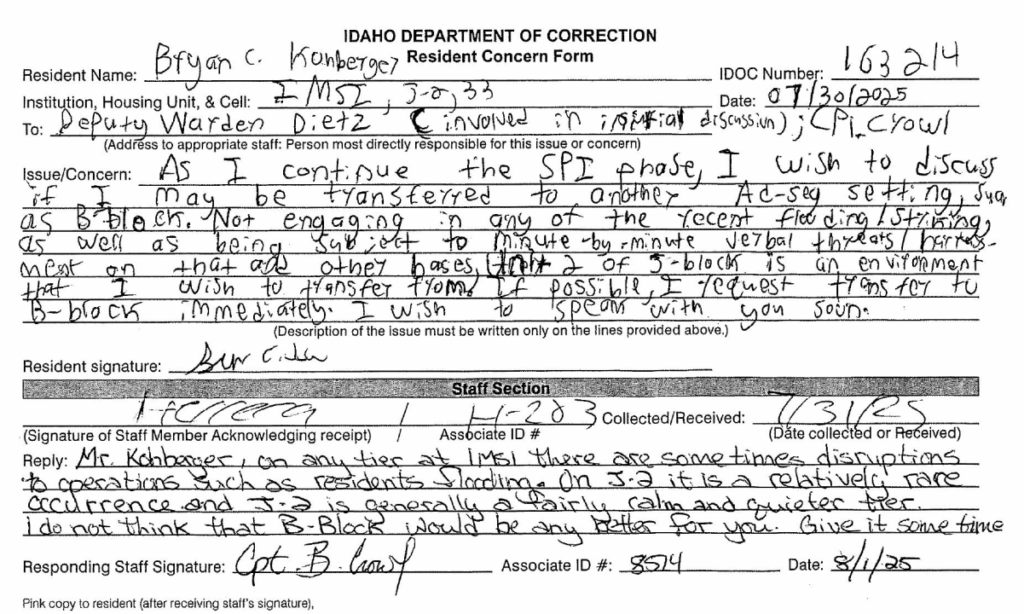 IDAHO DEPARTMENT OF CORRECTION
Resident Concern Form
Resident Name: Bryan C. Kohberger IDOC Number: 163214
Institution, Housing Unit, & Cell: IMSI, J-2, 33 Date: 07/30/2025
To: Deputy Warden Dietz (involved in initial discussion); CPt. Crowl
(Address to appropriate staff: Person most directly responsible for this issue or concern)
Issue/Concern: As I continue the SPI phase, I wish to discuss
if I may be transferred to another Ad-seg setting, such
as B-block. Not engaging in any of the recent flooding/striking,
as well as being subject to minute-by-minute verbal threats/harass-
ment on that and other bases, Unit 2 of J-block is an environment
that I wish to transfer from. If possible, I request transfer to
B-block immediately. I wish to speak with you soon.
(Description of the issue must be written only on the lines provided above.)
Resident signature:
Staff Section
/ H-203 Collected/Received: 7/31/25
(Signature of Staff Member Acknowledging receipt) / Associate ID # (Date collected or Received)
Reply: Mr. Kohberger, on any tier at IMSI there are sometimes disruptions
to operations such as residents flooding. On J-2 it is a relatively rare
occurrence and J-2 is generally a fairly calm and quieter tier.
I do not think that B-Block would be any better for you. Give it some time
Responding Staff Signature: Cpt. B. Crowl Associate ID #: 8514 Date: 8/1/25
Pink copy to resident (after receiving staff's signature),